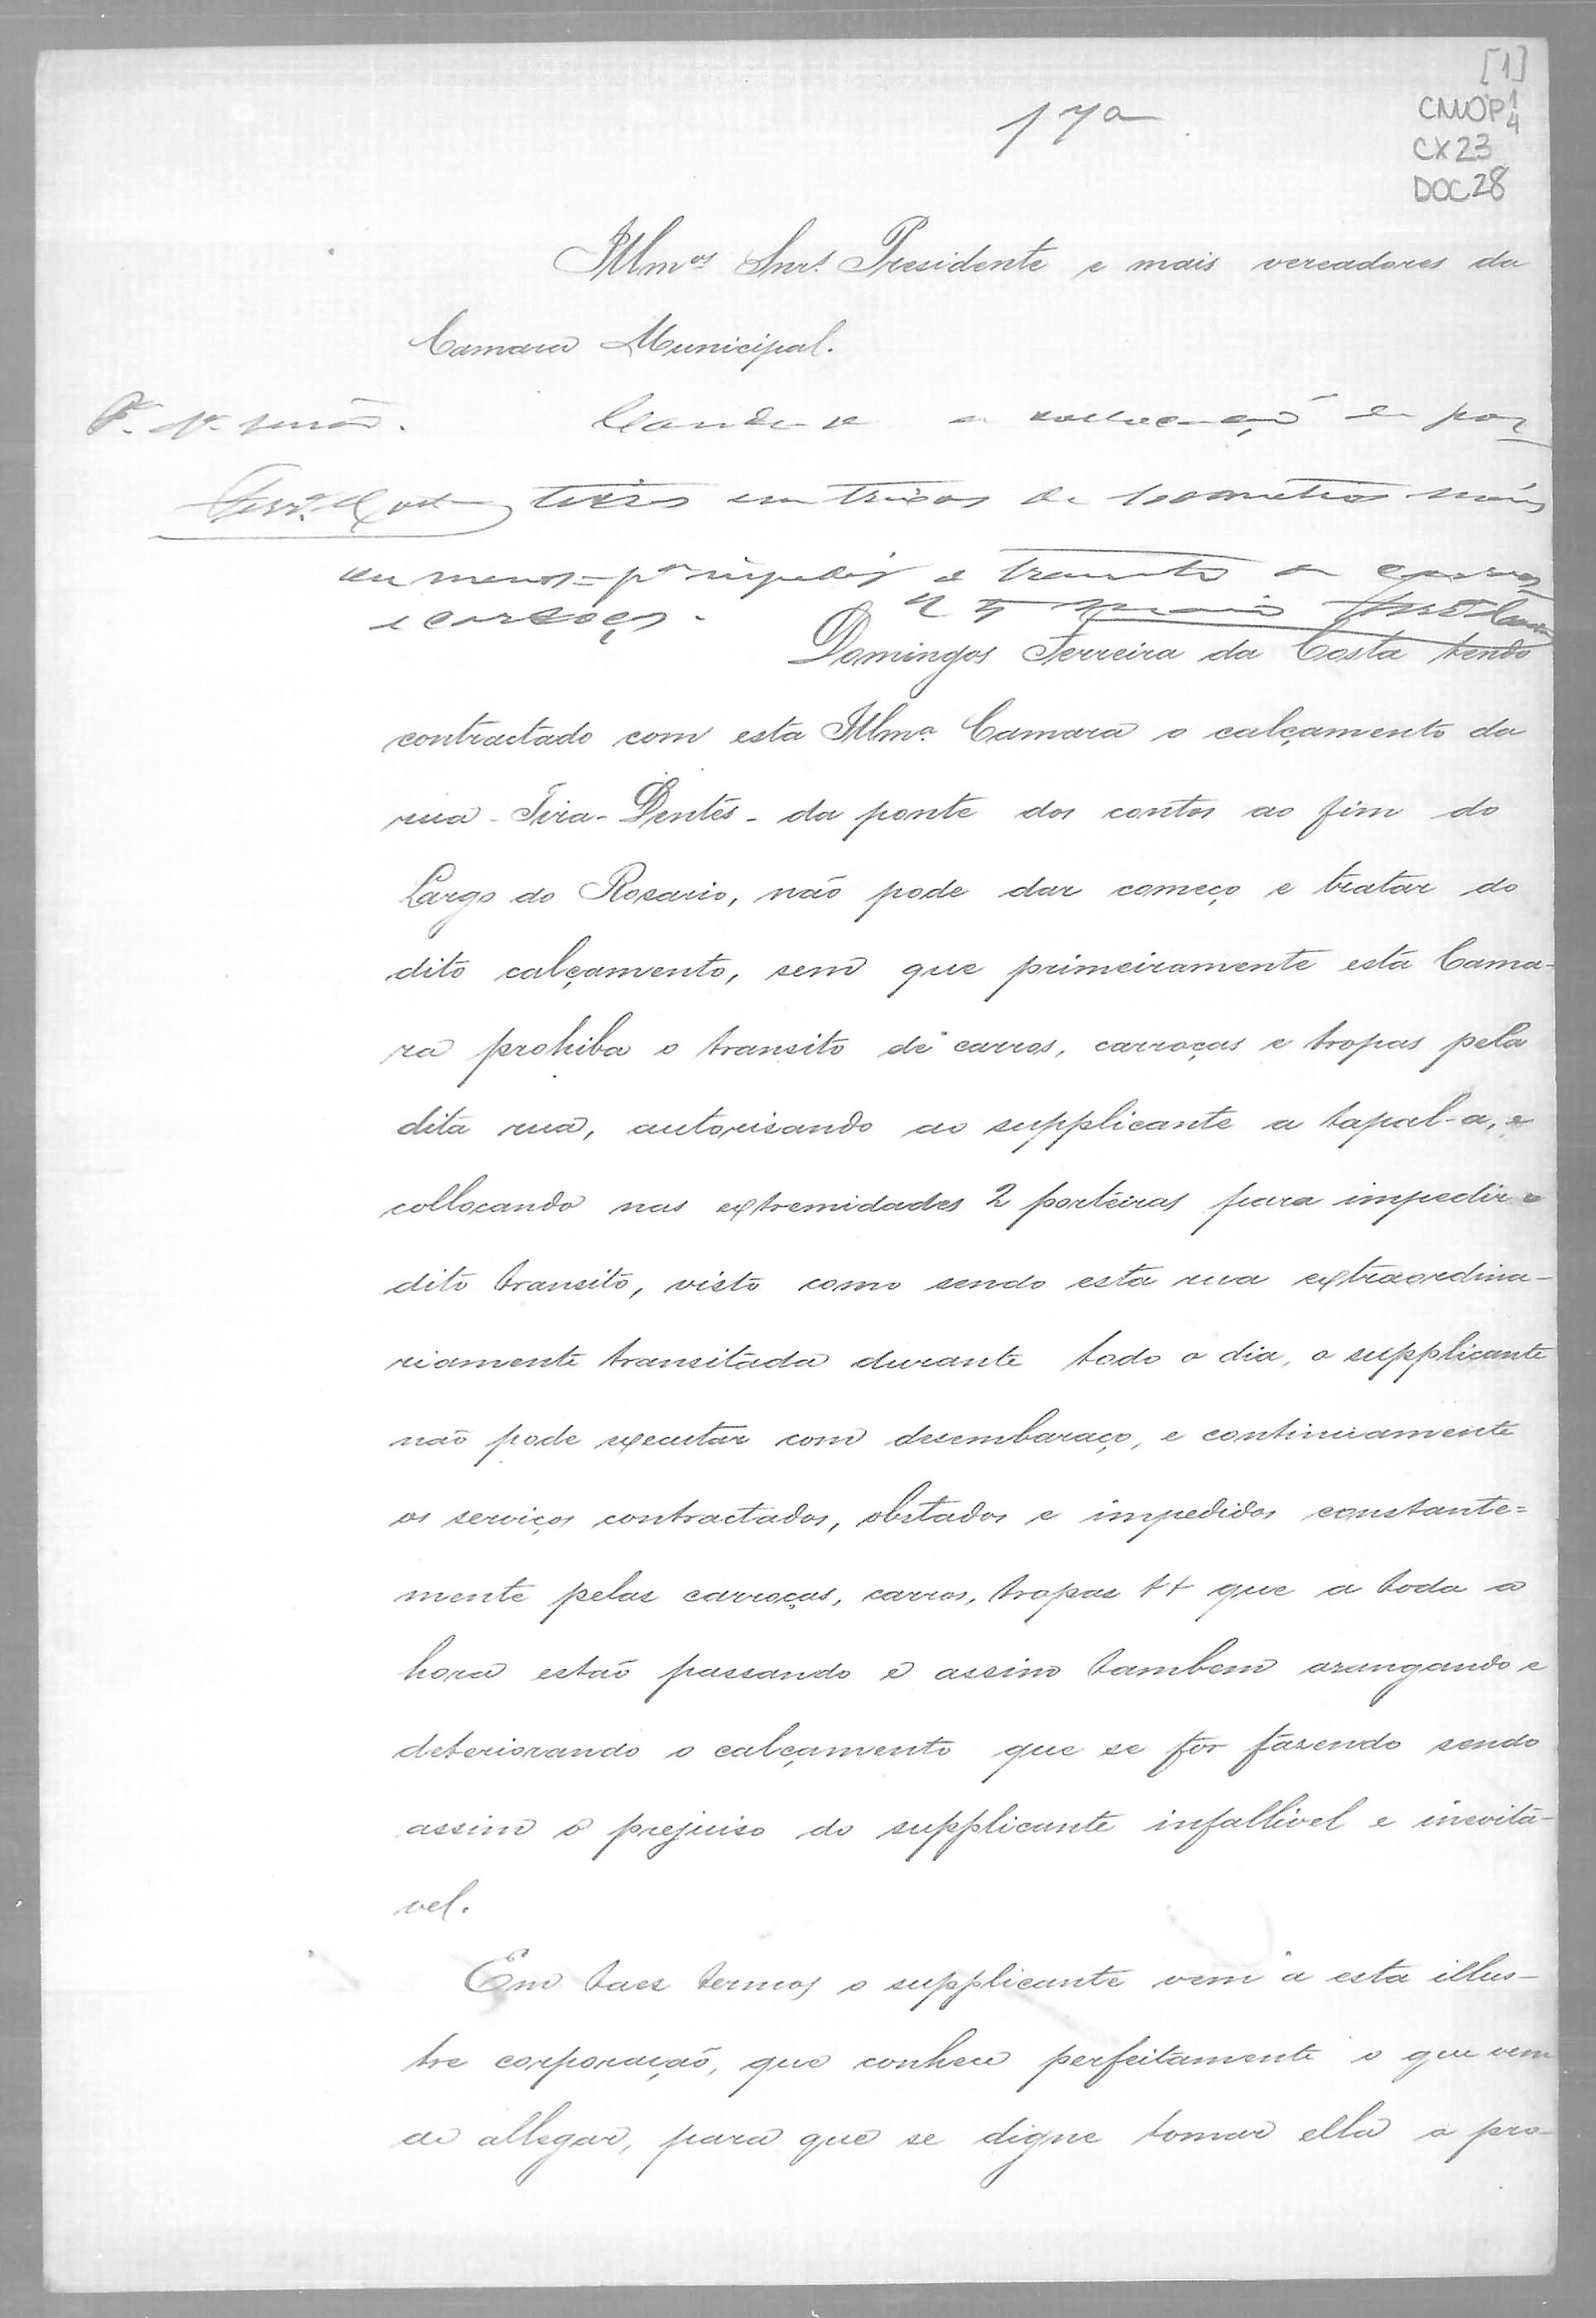 [1]
CMOP 1/4
CX23
DOC28
17ª
Illmos Snrs. Presidente e mais vereadores da
Camara Municipal.
a collocação de por
teiras em
ou menos pª impedir o transito de carros
e carroças.
Domingos Ferreira da Costa tendo
contractado com esta Illmª Camara o calçamento da
rua - Tira-Dentes - da ponte dos contos ao fim do
Largo do Rosario, não pode dar começo e tratar do
dito calçamento, sem que primeiramente esta Cama-
ra prohiba o transito de carros, carroças e tropas pela
dita rua, autorisando ao supplicante a tapal-a, e
collocando nas extremidades 2 porteiras para impedir o
dito transito, visto como sendo esta rua extraordina-
riamente transitada durante todo o dia, o supplicante
não pode executar com desembaraço, e continuamente
os serviços contractados, obstados e impedidos constante=
mente pelas carroças, carros, tropas && que a toda a
hora estão passando e assim tambem arengando e
deteriorando o calçamento que se for fazendo sendo
assim o prejuiso do supplicante infallivel e inevita-
vel.
Em taes termos o supplicante vem á esta illus-
tre corporação, que conhece perfeitamente o que vem
de allegar, para que se digne tomar ella a pro-